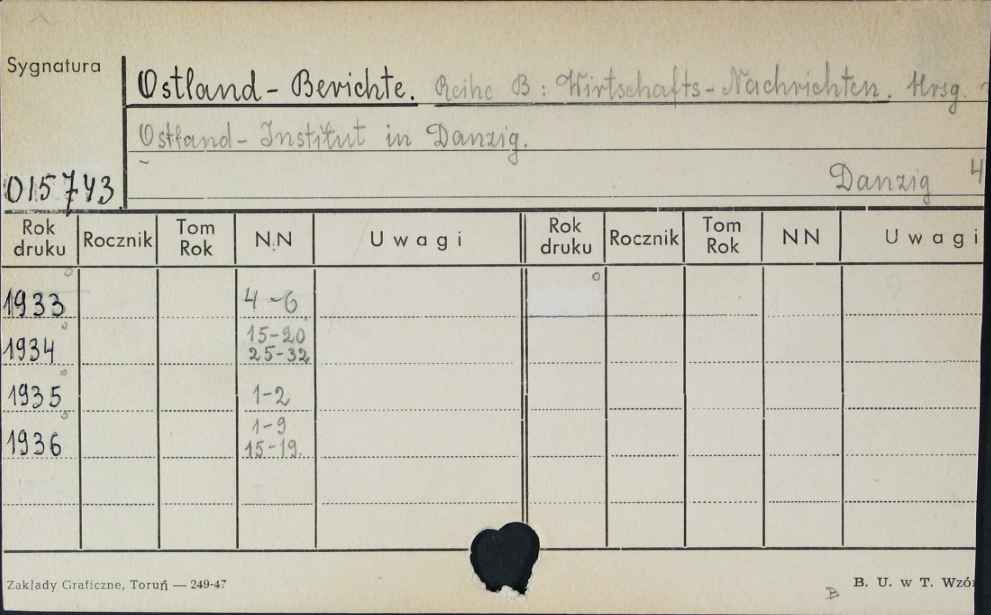 Sygnatura
Ostland-Berichte. Reihe B: Wirtschafts-Nachrichten. Hrsg.
Ostland-Institut in Danzig.
Danzig 4
015743
Rok druku Rocznik Tom Rok N.N Uwagi Rok druku Rocznik Tom Rok NN Uwagi
1933 4-6
1934 15-20
25-32
1935 1-2
1936 1-9
15-19.
Zakłady Graficzne, Toruń — 249-47
B
B. U. w T. Wzór